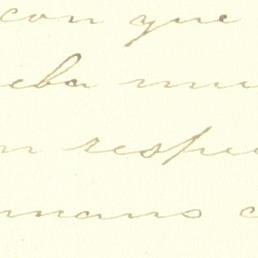 con que
eba mu
n respe
mano c